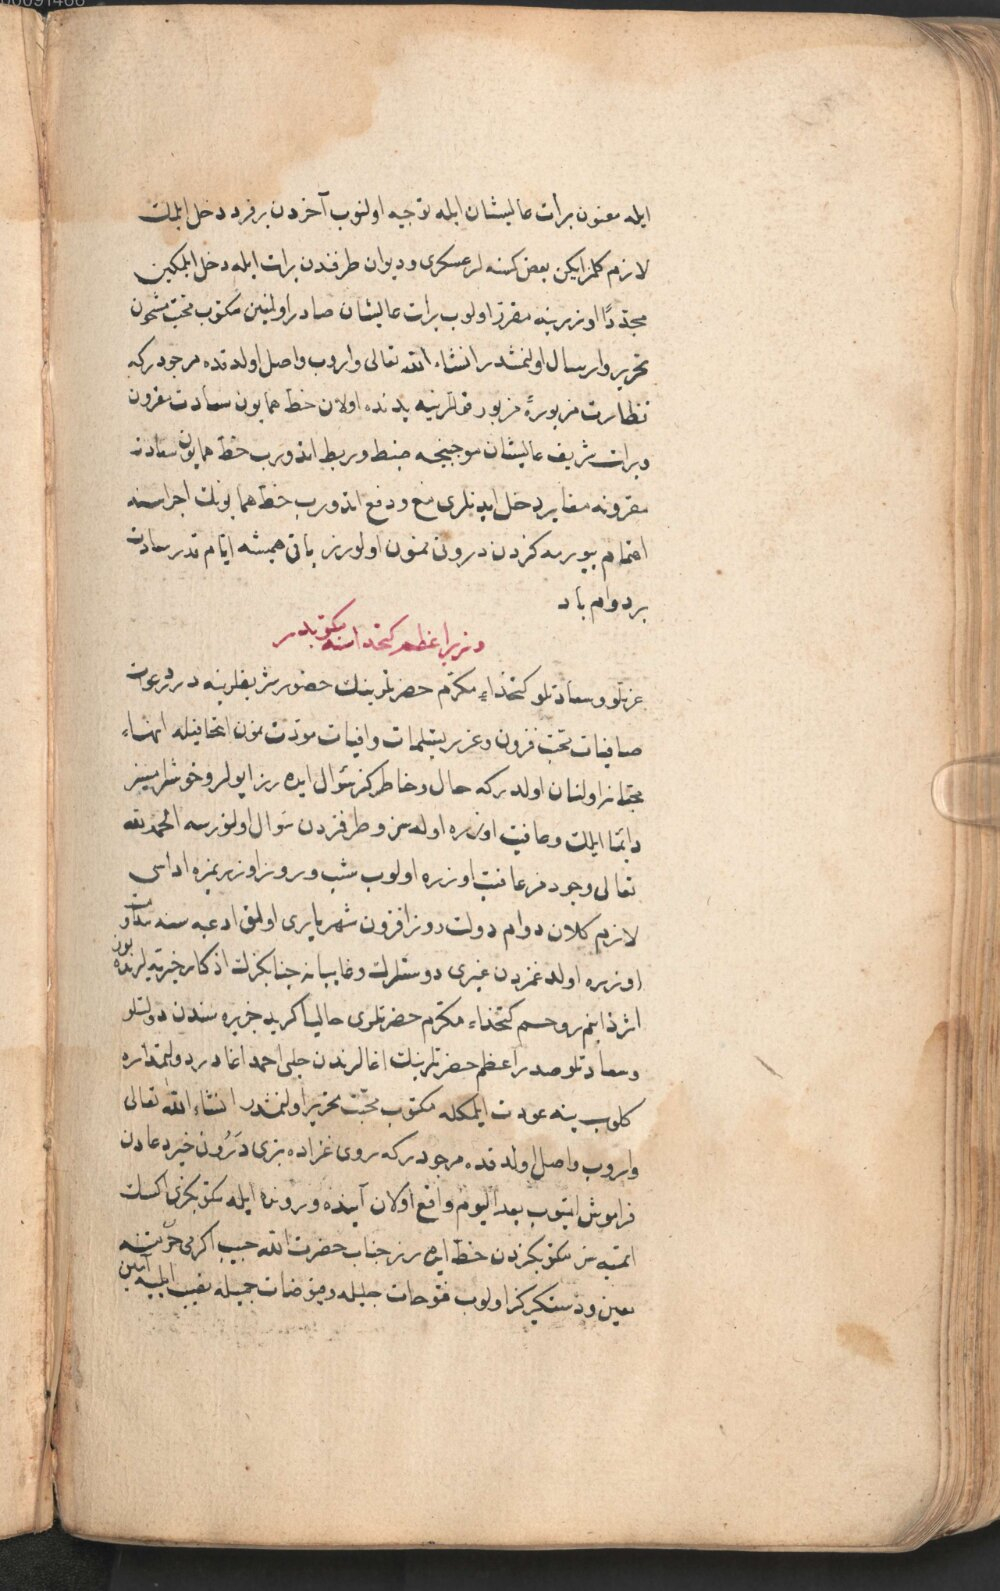 ايله معنون برات عاليشان ايله توجيه اولنوب آخردن بر فرد دخل ايلمك
لازم كلمز ايكن بعض كمسنه لر عسكرى و ديوان طرفندن برات ايله دخل ايلمكين
مجددًا اوزرينه مقرر اولوب برات عاليشان صادر اولمغين مكتوب محبت مشحون
تحرير و ارسال اولنمشدر انشاء الله تعالى واروب واصل اولدقده مرجودركه
نظارت مزبورۀ مزبور قوللرينه يدنده اولان خط همايون سعادت مقرون
و برات شريف عاليشان موجبنجه ضبط و ربط اتدورب خط همايون سعادت
مقرونه مغاير دخل ايدنلرى منع و دفع اتدورب خط همايونك اجراسنه
اهتمام بيورمه كزدن درونى ممنون اولورز باقى هميشه ايام قدر سعادت
بر دوام باد
وزير اعظم كتخداسنه مكتوبدر
عزتلو و سعادتلو كتخداء مكرم حضرتلرينك حضور شريفلرينه درر دعوات
صافيات محبت فزون و غرر تسليمات وافيات مودت نمون اتحافيله انهاء
محبانه اولنان اولدركه حال و خاطركز سؤال ايده رز ايولر و خوشلرميسز
دايما ايلك و عافيت اوزره اوله سز و طرفمزدن سؤال اولنورسه الحمد لله
تعالى وجودمز عافيت اوزره اولوب شب و روز اوزريمزه اداسى
لازم كلان دوام دولت روز افزون شهريارى اولمق ادعيه سنه مداومت
اوزره اولدغمزدن غيرى دوستلرك و غايبانه جنابكزك اذكار خيريه لرنده يوز
اثر ذا بنم روحم كتخداء مكرم حضرتلرى حاليا كريد جزيره سندن دولتلو
و سعادتلو صدر اعظم حضرتلرينك اغالرندن جلبى احمد اغا در دولتمداره
كلوب ينه عودت ايلمكله مكتوب محبت تحرير اولنمشدر انشاء الله تعالى
واروب واصل اولدقده مرجودركه روى غزاده بزى درون خير دعادن
فراموش ايتيوب بعد اليوم واقع اولان آينده و رونده ايله مكتوبكزى اكسك
ايتميه سز مكتوبكزدن حظ ايده رز جناب حضرت الله حبيب اكرمى حرمتنه
معين و دستكيركز اولوب فتوحات جليله و فيوضات جميله نصيب ايليه آمين